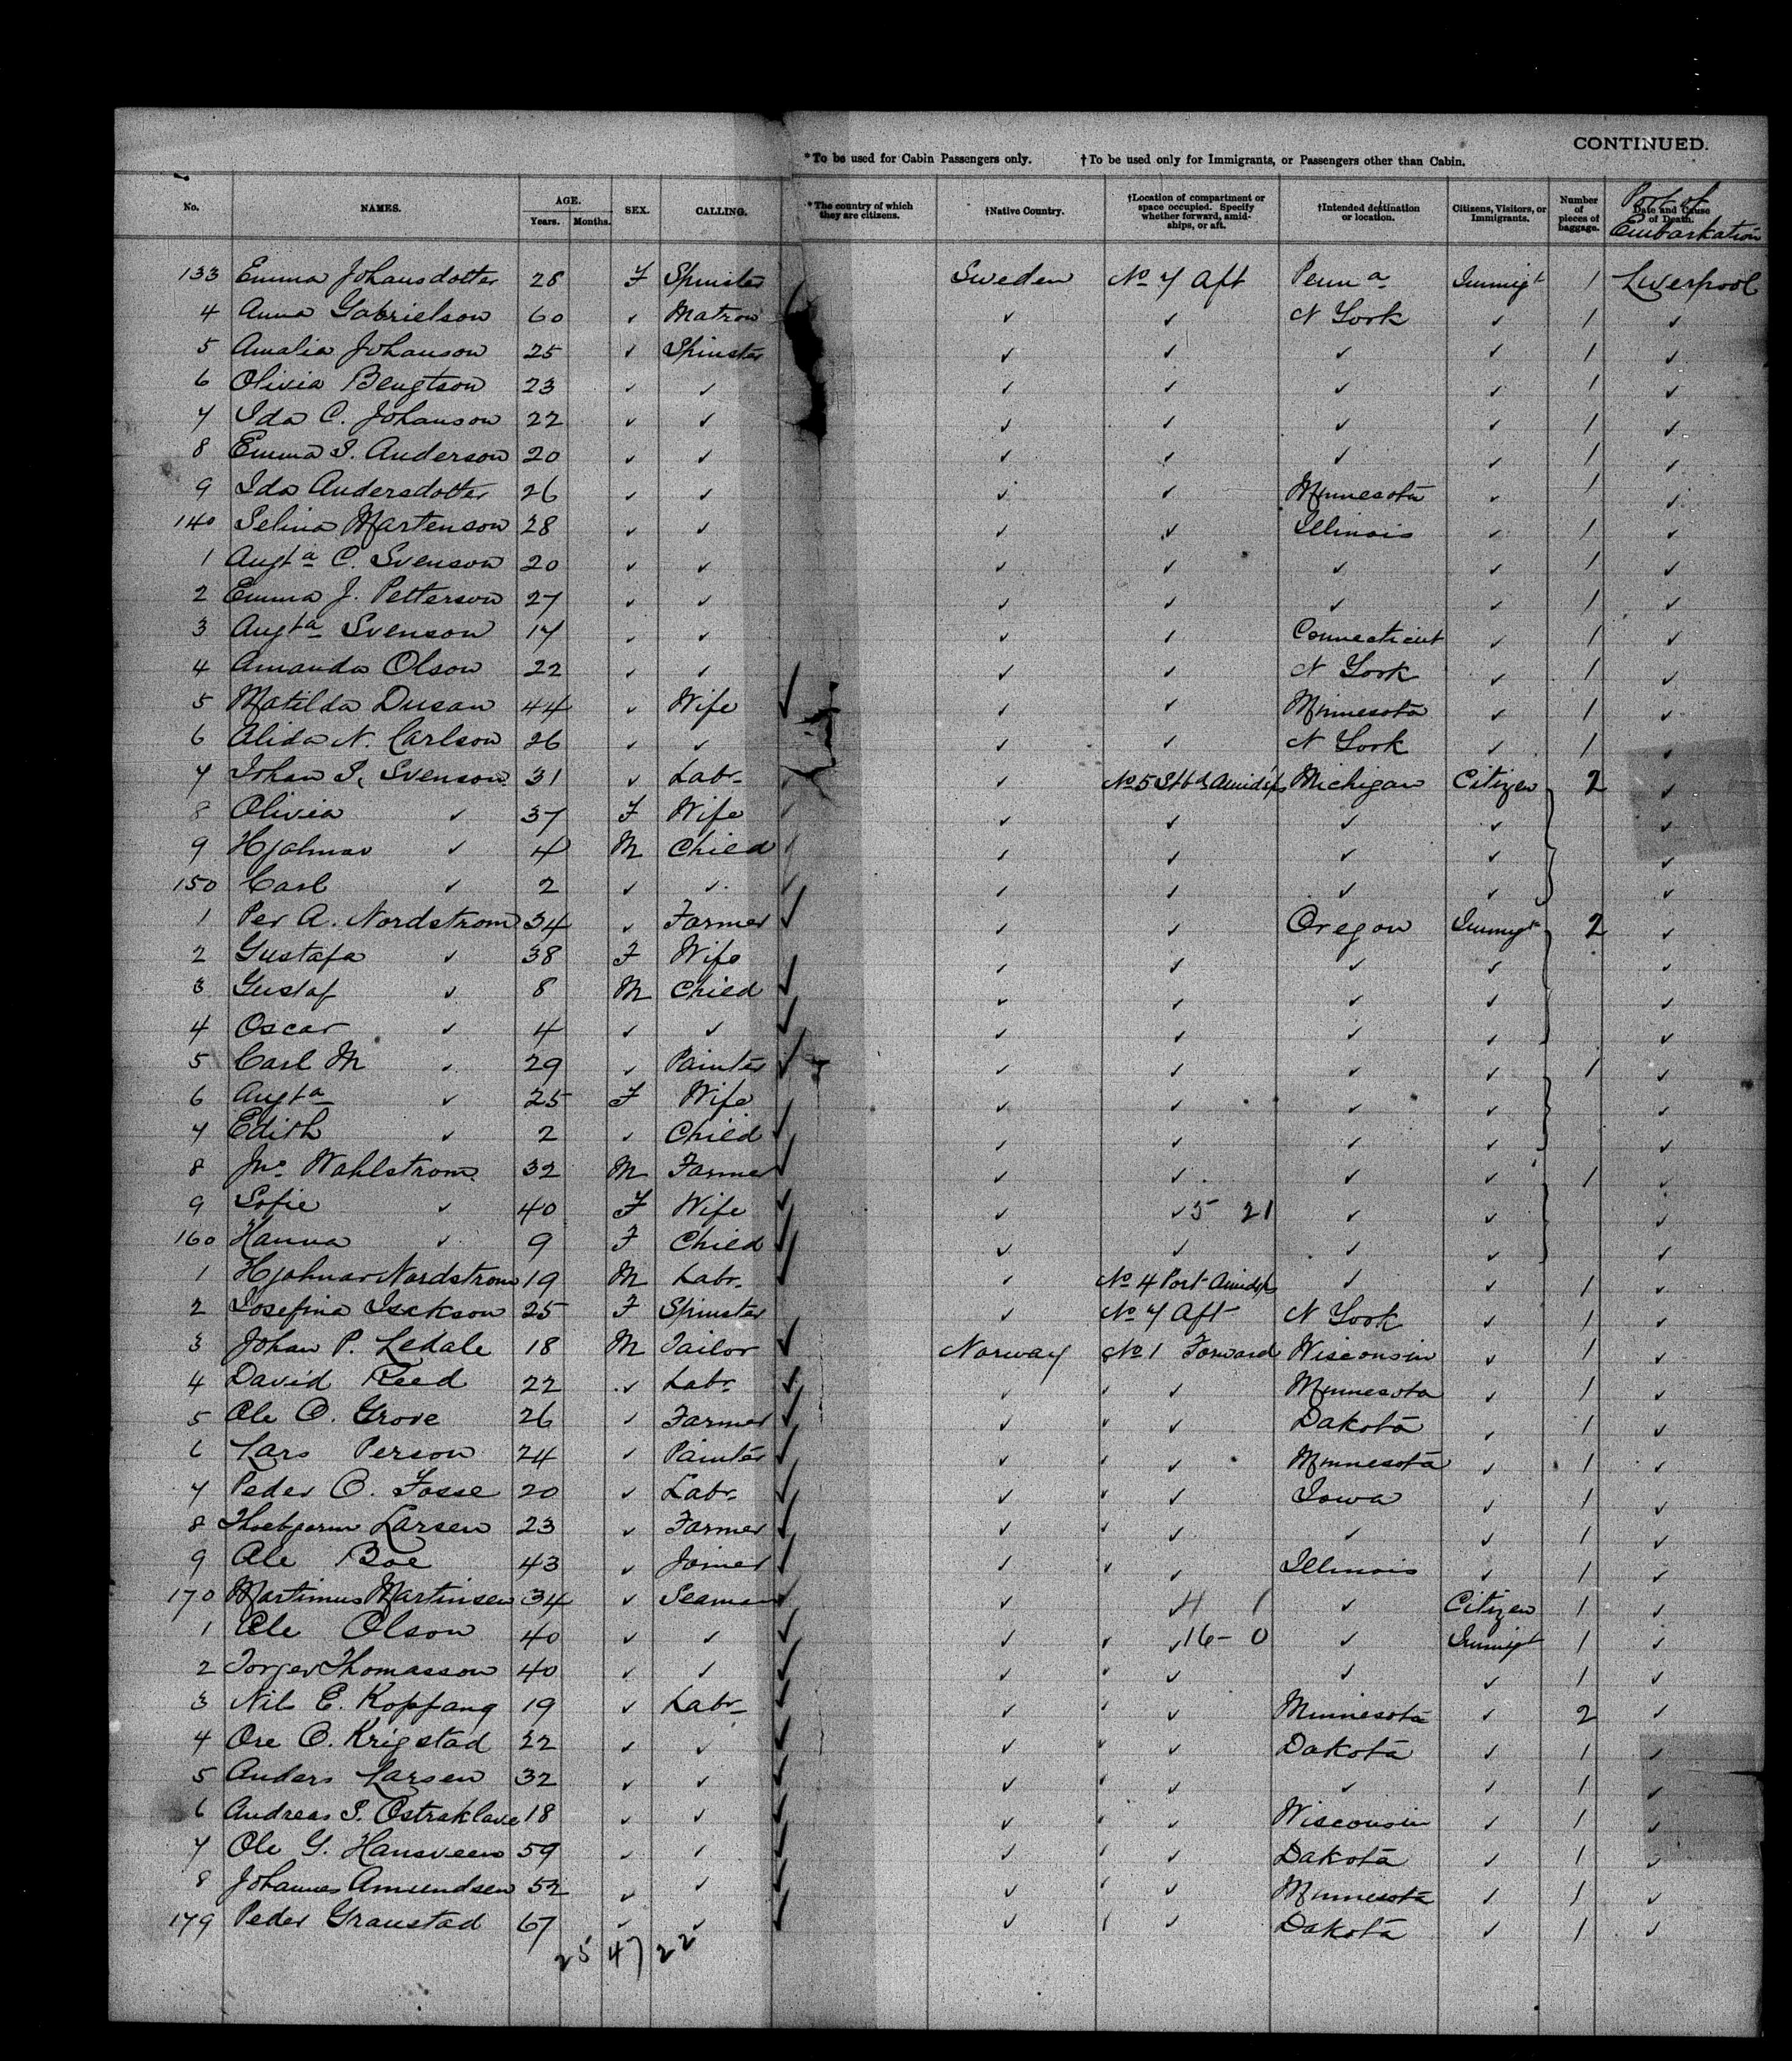 CONTINUED.
*To be used for Cabin Passengers only. †To be used only for Immigrants, or Passengers other than Cabin.
No. NAMES. AGE. Years. Months. SEX. CALLING. *The country of which they are citizens. †Native Country. †Location of compartment or space occupied. Specify whether forward, amidships, or aft. †Intended destination or location. Citizens, Visitors, or Immigrants. Number of pieces of baggage. Date and Cause of Death. Port of Embarkation
133 Emma Johansdotter 28 F Spinster Sweden No 7 Aft Penna Immigt 1 Liverpool
4 Anna Gabrielson 60 ✓ Matron ✓ ✓ N York ✓ 1 ✓
5 Amalia Johanson 25 ✓ Spinster ✓ ✓ ✓ ✓ 1 ✓
6 Olivia Bengtson 23 ✓ ✓ ✓ ✓ ✓ ✓ 1 ✓
7 Ida C. Johanson 22 ✓ ✓ ✓ ✓ ✓ ✓ 1 ✓
8 Emma S. Anderson 20 ✓ ✓ ✓ ✓ ✓ ✓ 1 ✓
9 Ida Andersdotter 26 ✓ ✓ ✓ ✓ Minnesota ✓ 1 ✓
140 Selina Martenson 28 ✓ ✓ ✓ ✓ Illinois ✓ 1 ✓
1 Augta C. Svenson 20 ✓ ✓ ✓ ✓ ✓ ✓ 1 ✓
2 Emma J. Petterson 27 ✓ ✓ ✓ ✓ ✓ ✓ 1 ✓
3 Augta Svenson 17 ✓ ✓ ✓ ✓ Connecticut ✓ 1 ✓
4 Amanda Olson 22 ✓ ✓ ✓ ✓ N York ✓ 1 ✓
5 Matilda Dusan 44 ✓ Wife ✓ ✓ Minnesota ✓ 1 ✓
6 Alida N. Carlson 26 ✓ ✓ ✓ ✓ N York ✓ 1 ✓
7 Johan S. Svenson 31 ✓ Labr ✓ No 5 Stbd Amidsps Michigan Citizen 2 ✓
8 Olivia ✓ 37 F Wife ✓ ✓ ✓ ✓ ✓
9 Hjalmar ✓ 4 M Child ✓ ✓ ✓ ✓ ✓
150 Carl ✓ 2 ✓ ✓ ✓ ✓ ✓ ✓ ✓
1 Per A. Nordstrom 34 ✓ Farmer ✓ ✓ Oregon Immigt 2 ✓
2 Gustafa ✓ 38 F Wife ✓ ✓ ✓ ✓ ✓
3 Gustaf ✓ 8 M Child ✓ ✓ ✓ ✓ ✓
4 Oscar ✓ 4 ✓ ✓ ✓ ✓ ✓ ✓ ✓
5 Carl M ✓ 29 ✓ Painter ✓ ✓ ✓ ✓ 1 ✓
6 Augta ✓ 25 F Wife ✓ ✓ ✓ ✓ ✓
7 Edith ✓ 2 ✓ Child ✓ ✓ ✓ ✓ ✓
8 Jno Wahlstrom 32 M Farmer ✓ ✓ ✓ ✓ 1 ✓
9 Sofie ✓ 40 F Wife ✓ ✓ 5 21 ✓ ✓ ✓
160 Hanna ✓ 9 F Child ✓ ✓ ✓ ✓ ✓
1 Hjalmar Nordstrom 19 M Labr ✓ No 4 Port Amidsps ✓ ✓ 1 ✓
2 Josefina Isakson 25 F Spinster ✓ No 7 Aft N York ✓ 1 ✓
3 Johan P. Ledale 18 M Tailor Norway No 1 Forward Wisconsin ✓ 1 ✓
4 David Reed 22 ✓ Labr ✓ ✓ ✓ Minnesota ✓ 1 ✓
5 Ole O. Grove 26 ✓ Farmer ✓ ✓ ✓ Dakota ✓ 1 ✓
6 Lars Person 24 ✓ Painter ✓ ✓ ✓ Minnesota ✓ 1 ✓
7 Peder O. Fosse 20 ✓ Labr ✓ ✓ ✓ Iowa ✓ 1 ✓
8 Thorbjorn Larsen 23 ✓ Farmer ✓ ✓ ✓ ✓ ✓ 1 ✓
9 Ole Boe 43 ✓ Joiner ✓ ✓ ✓ Illinois ✓ 1 ✓
170 Martinus Martinsen 34 ✓ Seaman ✓ ✓ 4 1 ✓ Citizen 1 ✓
1 Ole Olson 40 ✓ ✓ ✓ ✓ ✓ 16 - 0 ✓ Immigt 1 ✓
2 Torger Thomasson 40 ✓ ✓ ✓ ✓ ✓ ✓ ✓ 1 ✓
3 Nils E. Koppang 19 ✓ Labr ✓ ✓ ✓ Minnesota ✓ 2 ✓
4 Ore O. Krigstad 22 ✓ ✓ ✓ ✓ ✓ Dakota ✓ 1 ✓
5 Anders Larsen 32 ✓ ✓ ✓ ✓ ✓ ✓ ✓ 1 ✓
6 Andreas S. Ostraklave 18 ✓ ✓ ✓ ✓ ✓ Wisconsin ✓ 1 ✓
7 Ole G. Hansveen 59 ✓ ✓ ✓ ✓ ✓ Dakota ✓ 1 ✓
8 Johannes Amundsen 52 ✓ ✓ ✓ ✓ ✓ Minnesota ✓ 1 ✓
179 Peder Granstad 67 ✓ ✓ ✓ ✓ ✓ Dakota ✓ 1 ✓
25 47 22